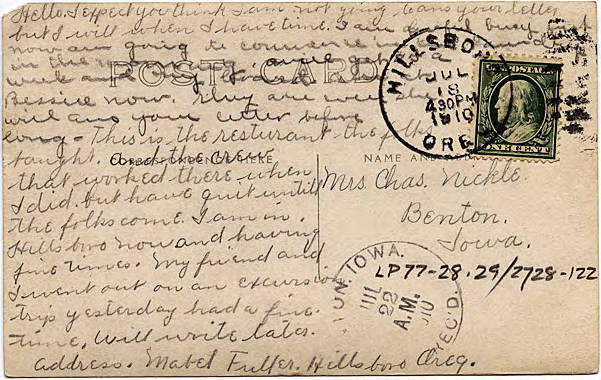 Hello. I expect you think I am not going to ans your letter
but I will when I have time. I am awful busy just
now am going to commence in
in the
week and
Bessie now. They are well She
will ans your letter before
long - This is the resturant the folks
bought, and the crew
that worked there when
I did. but have quit until
the folks come. I am in
Hillsboro now and having
fine times. My friend and
I went out on an excursion
trip yesterday had a fine
time, Will write later.
address. Mabel Fuller. Hillsboro Oreg.
POST CARD
CORRESPONDENCE HERE
NAME AND
HILLSBORO
JUL
18
430PM
1910
OREG
U.S. POSTAGE
ONE CENT
Mrs Chas. Nickle.
Benton.
Iowa.
LP77-28.29/2728-122
IOWA.
JUL
22
A.M.
1910
REC'D.